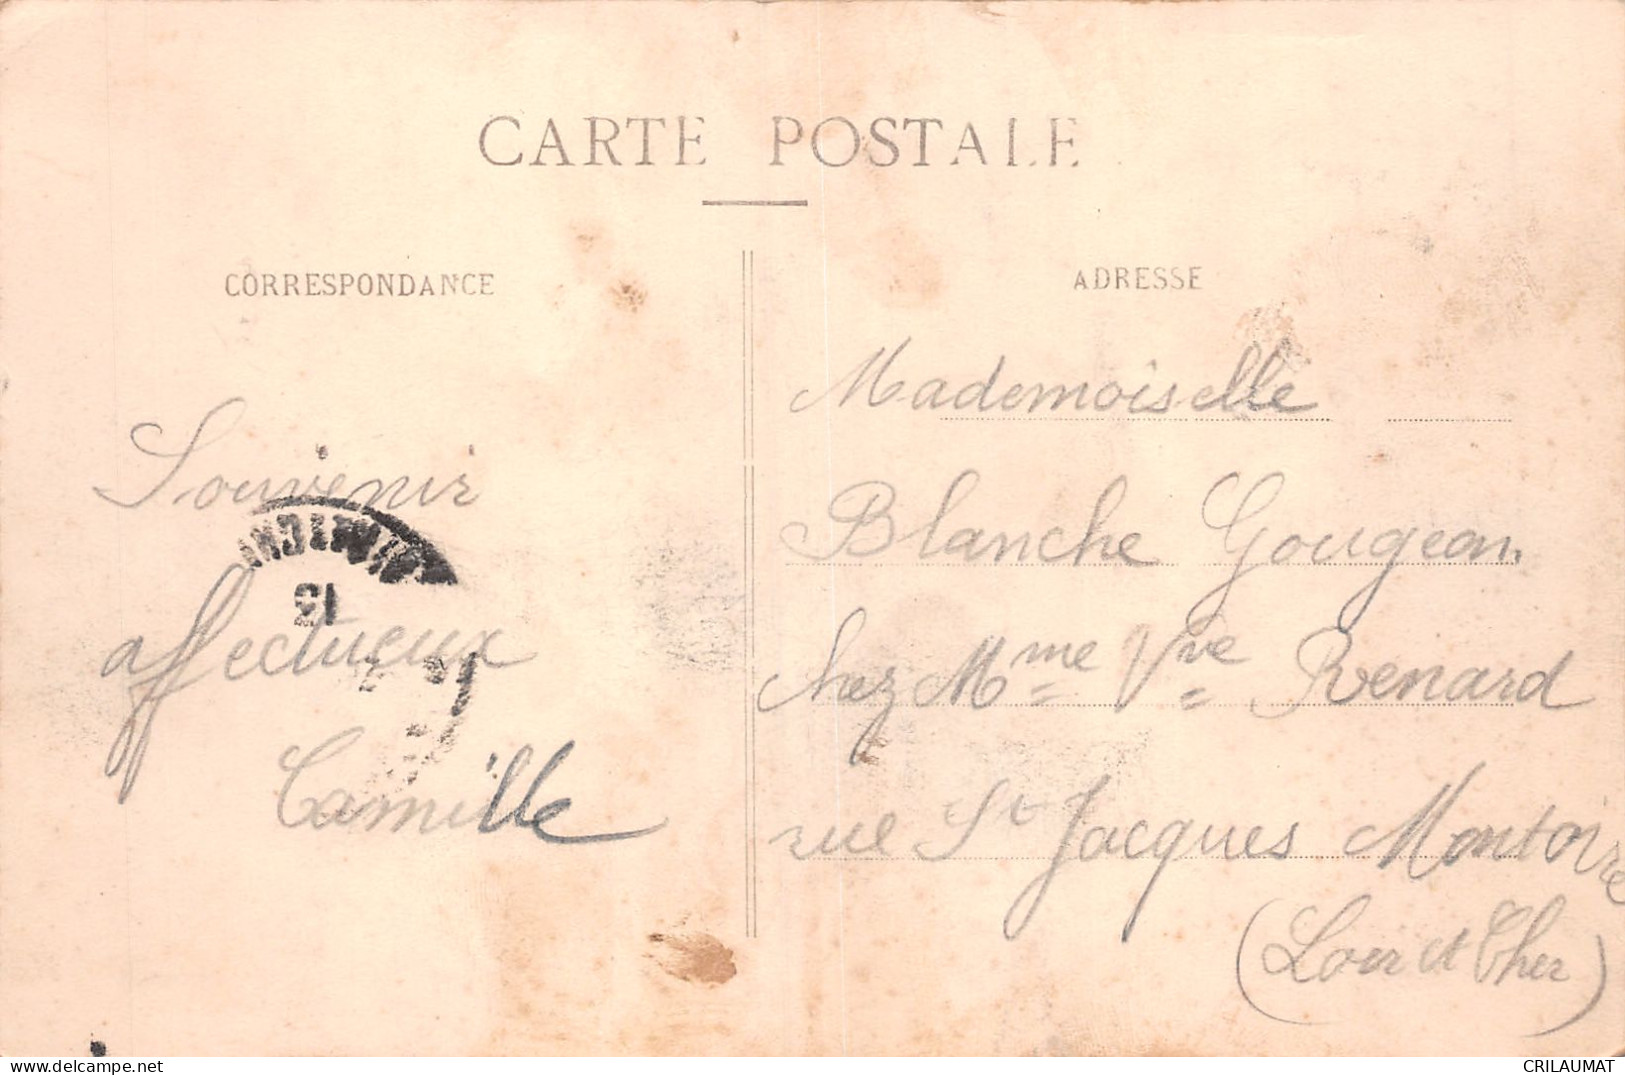 CARTE POSTALE
CORRESPONDANCE
Souvenir
affectueux
Camille
ADRESSE
Mademoiselle
Blanche Gougeon
chez Mme Vve Renard
rue St Jacques Montoire
(Loir et Cher)
13
www.delcampe.net
CRILAUMAT